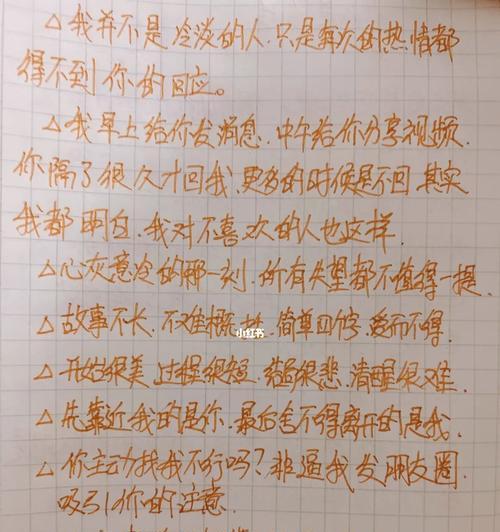 △我并不是冷淡的人.只是每次的热情都
得不到你的回应。
△我早上给你发消息.中午给你分享视频.
你隔了很久才回我.更多的时候是不回.其实
我都明白.我对不喜欢的人也这样.
△心灰意冷的那一刻.所有失望都不值得一提.
△故事不长.不难概 .简单四字.爱而不得.
小红书
△开始很美.过程很短.结局很悲.清醒很难.
△先靠近我的是你.最后舍不得离开的是我.
△你主动找我不行吗？非逼我发朋友圈
吸引你的注意.